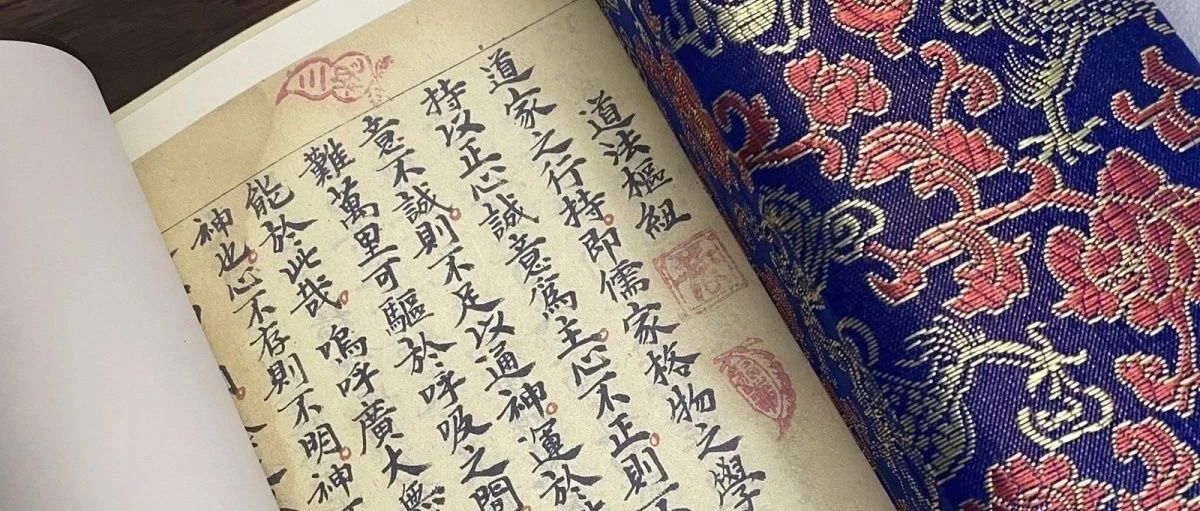 道法樞紐
道家之行持。即儒家格物之學
持以正心誠意爲主。心不正。則不
意不誠。則不足以通神。運於
難萬里可驅於呼吸之間。
能於此哉。嗚呼廣大無
神也。心不存則不明。神